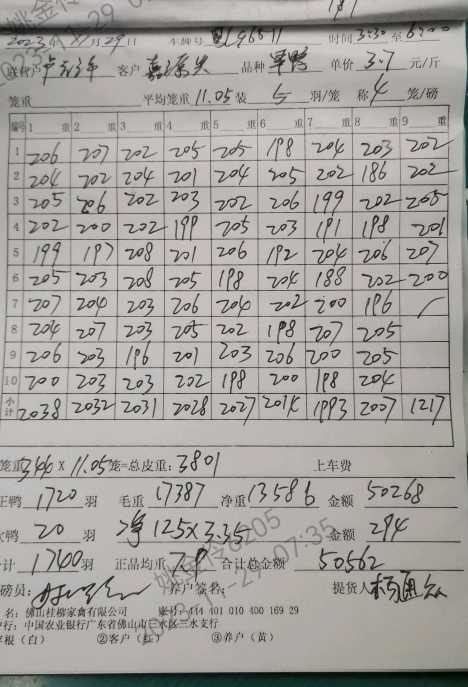 2023年11月29日 车牌号 时间 3:30 至 6:00
客户 品种 单价 3.7 元/斤
笼重 平均笼重 11.05 装 5 羽/笼 称 4 笼/磅
编号 1 重 2 重 3 重 4 重 5 重 6 重 7 重 8 重 9 重
1 206 207 202 205 205 198 204 203 202
2 204 202 204 201 204 205 202 186 202
3 205 206 202 203 202 206 199 202 205
4 202 200 202 199 205 203 191 198 201
5 199 197 208 201 206 192 204 206 207
6 205 203 208 205 198 204 188 202 200
7 207 204 203 206 204 202 200 196
8 204 207 203 205 202 198 207 205
9 206 203 196 201 203 206 200 205
10 200 203 203 202 198 200 198 204
小计 2038 2032 2031 2028 2027 2014 1993 2007 1217
笼重 344 X 11.05 笼=总皮重: 3801 上车费
正鸭 1720 羽 毛重 17387 净重 13586 金额 50268
次鸭 20 羽 净 125X3.35 金额 294
合计 1740 羽 正品均重 7.9 合计总金额 50562
磅员: 养户签名: 提货人
名: 佛山桂柳家禽有限公司 账号: 444 401 010 400 169 29
户行: 中国农业银行广东省佛山市三水区三水支行
存根（白） ②客户（红） ③养户（黄）